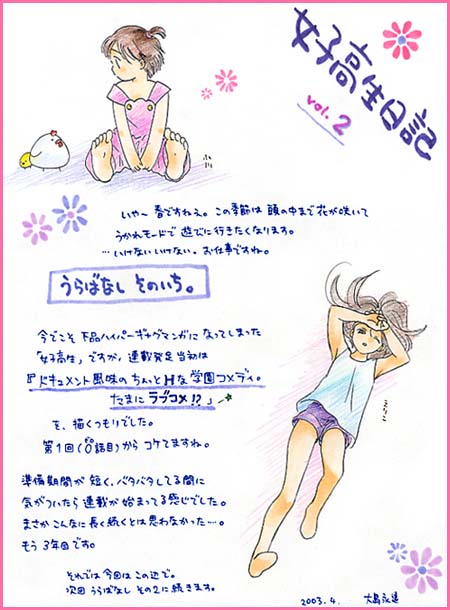 女子高生日記
vol.2
いや〜 春ですねぇ。この季節は 頭の中まで花が咲いて
うかれモードで 遊びに行きたくなります。
…いけないいけない。お仕事ですね。
うらばなし そのいち。
今でこそ 下品ハイパーギャグマンガに なってしまった
「女子高生」ですが、連載発足当初は
『ドキュメント風味の ちょっとHな 学園コメディ。
たまに ラブコメ!?』
を、描くつもりでした。
第1回(0話目)から コケてますね。
準備期間が 短く、バタバタしてる間に
気がついたら 連載が 始まってる感じでした。
まさか こんなに 長く続くとは 思わなかった…。
もう 3年目です。
それでは 今回は この辺で。
次回 うらばなし その2に 続きます。
2003.4. 大島永遠